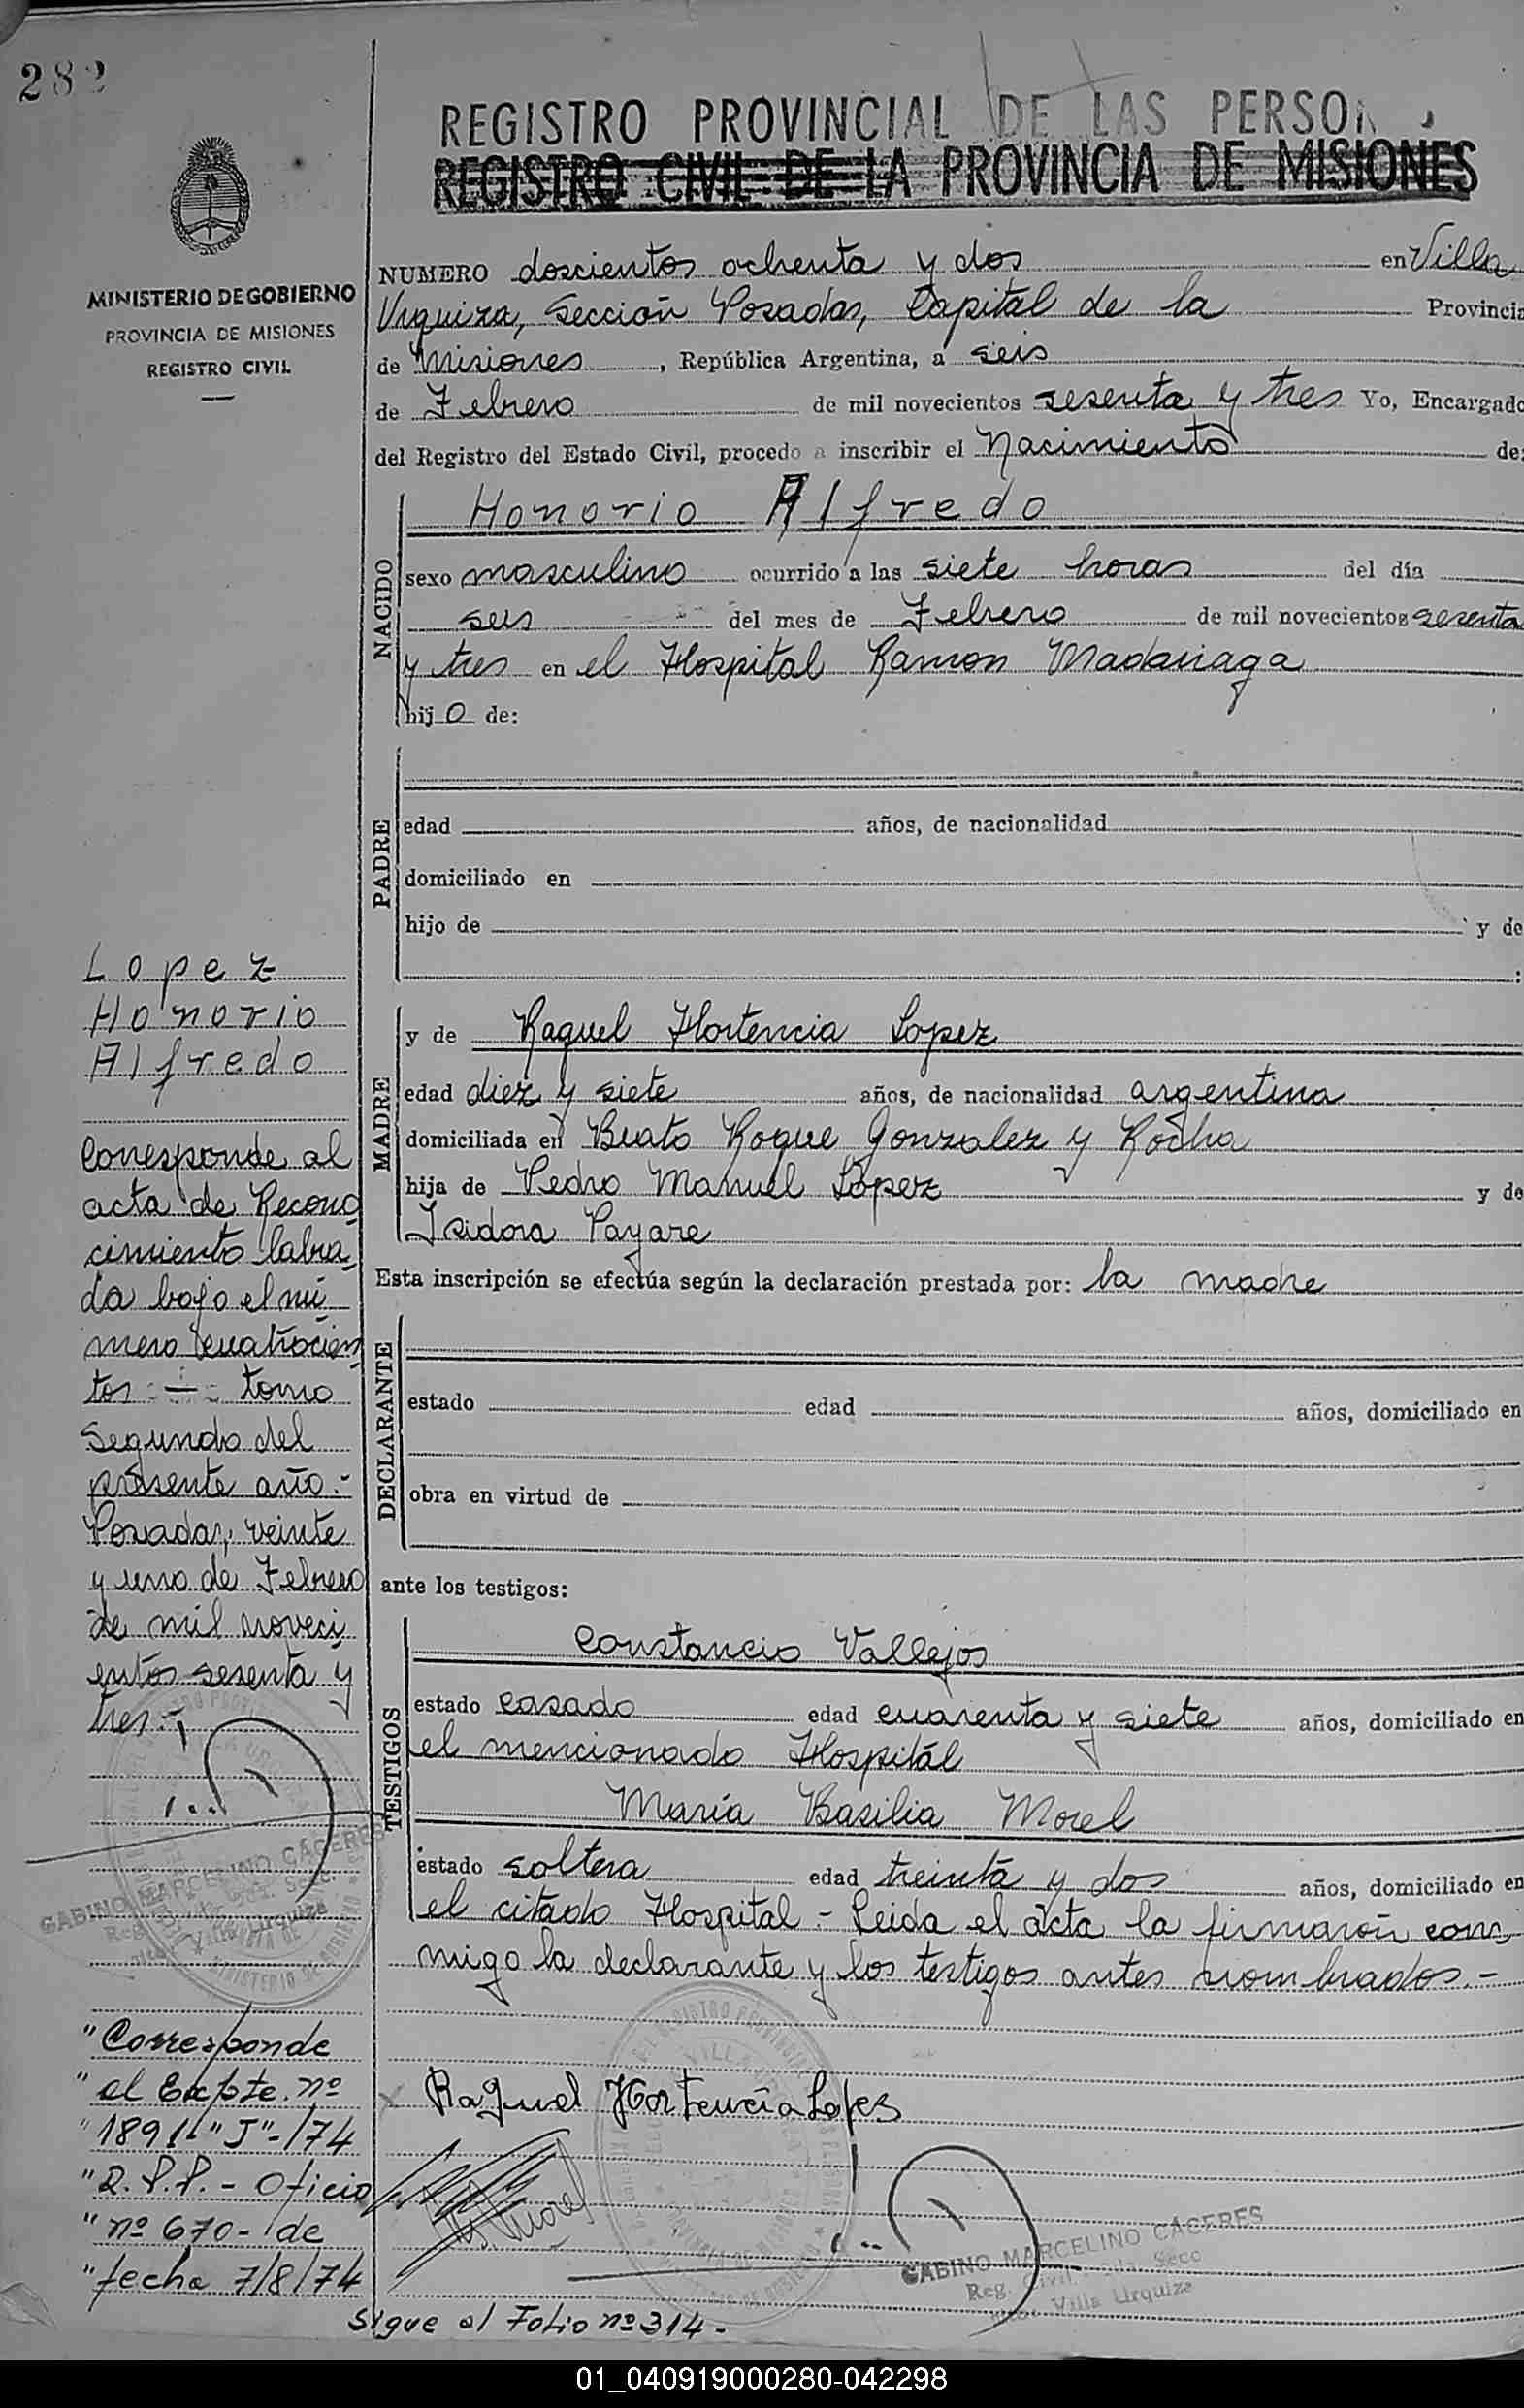 282
REGISTRO PROVINCIAL DE LAS PERSO
REGISTRO CIVIL DE LA PROVINCIA DE MISIONES
MINISTERIO DE GOBIERNO
PROVINCIA DE MISIONES
REGISTRO CIVIL
NUMERO doscientos ochenta y dos en Villa
Urquiza, Sección Posadas, Capital de la Provincia
de Misiones, República Argentina, a seis
de Febrero de mil novecientos sesenta y tres Yo, Encargado
del Registro del Estado Civil, procedo a inscribir el Nacimiento de:
NACIDO
Honorio Alfredo
sexo masculino ocurrido a las siete horas del día
seis del mes de Febrero de mil novecientos sesenta
y tres en el Hospital Ramon Madariaga
hijo de:
PADRE
edad años, de nacionalidad
domiciliado en
hijo de y de
:
MADRE
y de Raquel Hortencia Lopez
edad diez y siete años, de nacionalidad argentina
domiciliada en Beato Roque Gonzalez y Rocha
hija de Pedro Manuel López y de
Isidora Payare
Esta inscripción se efectúa según la declaración prestada por: la madre
DECLARANTE
estado edad años, domiciliado en
obra en virtud de
ante los testigos:
TESTIGOS
Constancio Vallejos
estado casado edad cuarenta y siete años, domiciliado en
el mencionado Hospitál
María Basilia Morel
estado soltera edad treinta y dos años, domiciliado en
el citado Hospital - Leida el acta la firmaron con
migo la declarante y los testigos antes nombrados.-
Raquel Hortencia Lopes
GABINO MARCELINO CÁCERES
Reg. Civil Seco
Villa Urquiza
Sigue al Folio nº 314-
Lopez
Honorio
Alfredo
Corresponde al
acta de Recono
cimiento labra
da bajo el nú
mero cuatrocien
tos -:- tomo
Segundo del
présente año.-
Posadas, veinte
y uno de Febrero
de mil noveci
entos sesenta y
tres.-
GABINO MARCELINO CÁCERES
Villa Urquiza
"Corresponde
"al Expte. nº
"1891-"J"-/74
"R.P.P.- Oficio
"nº 670- de
"fecha 7/8/74
01_040919000280-042298